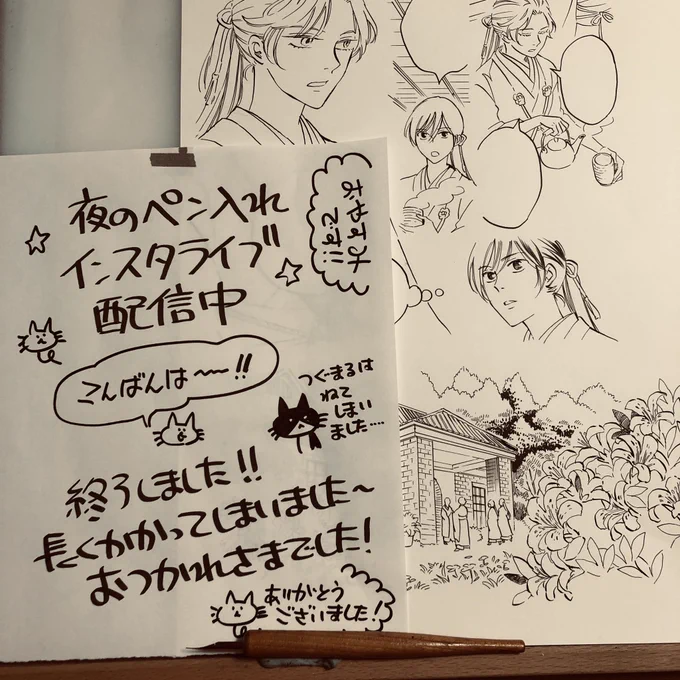 夜のペン入れ
インスタライブ
配信中
おやすみ
です!!
こんばんは〜〜!!
つぐまるは
ねて
しまい
ました….
終了しました!!
長くかかってしまいました〜
おつかれさまでした!
ありがとう
ございました!